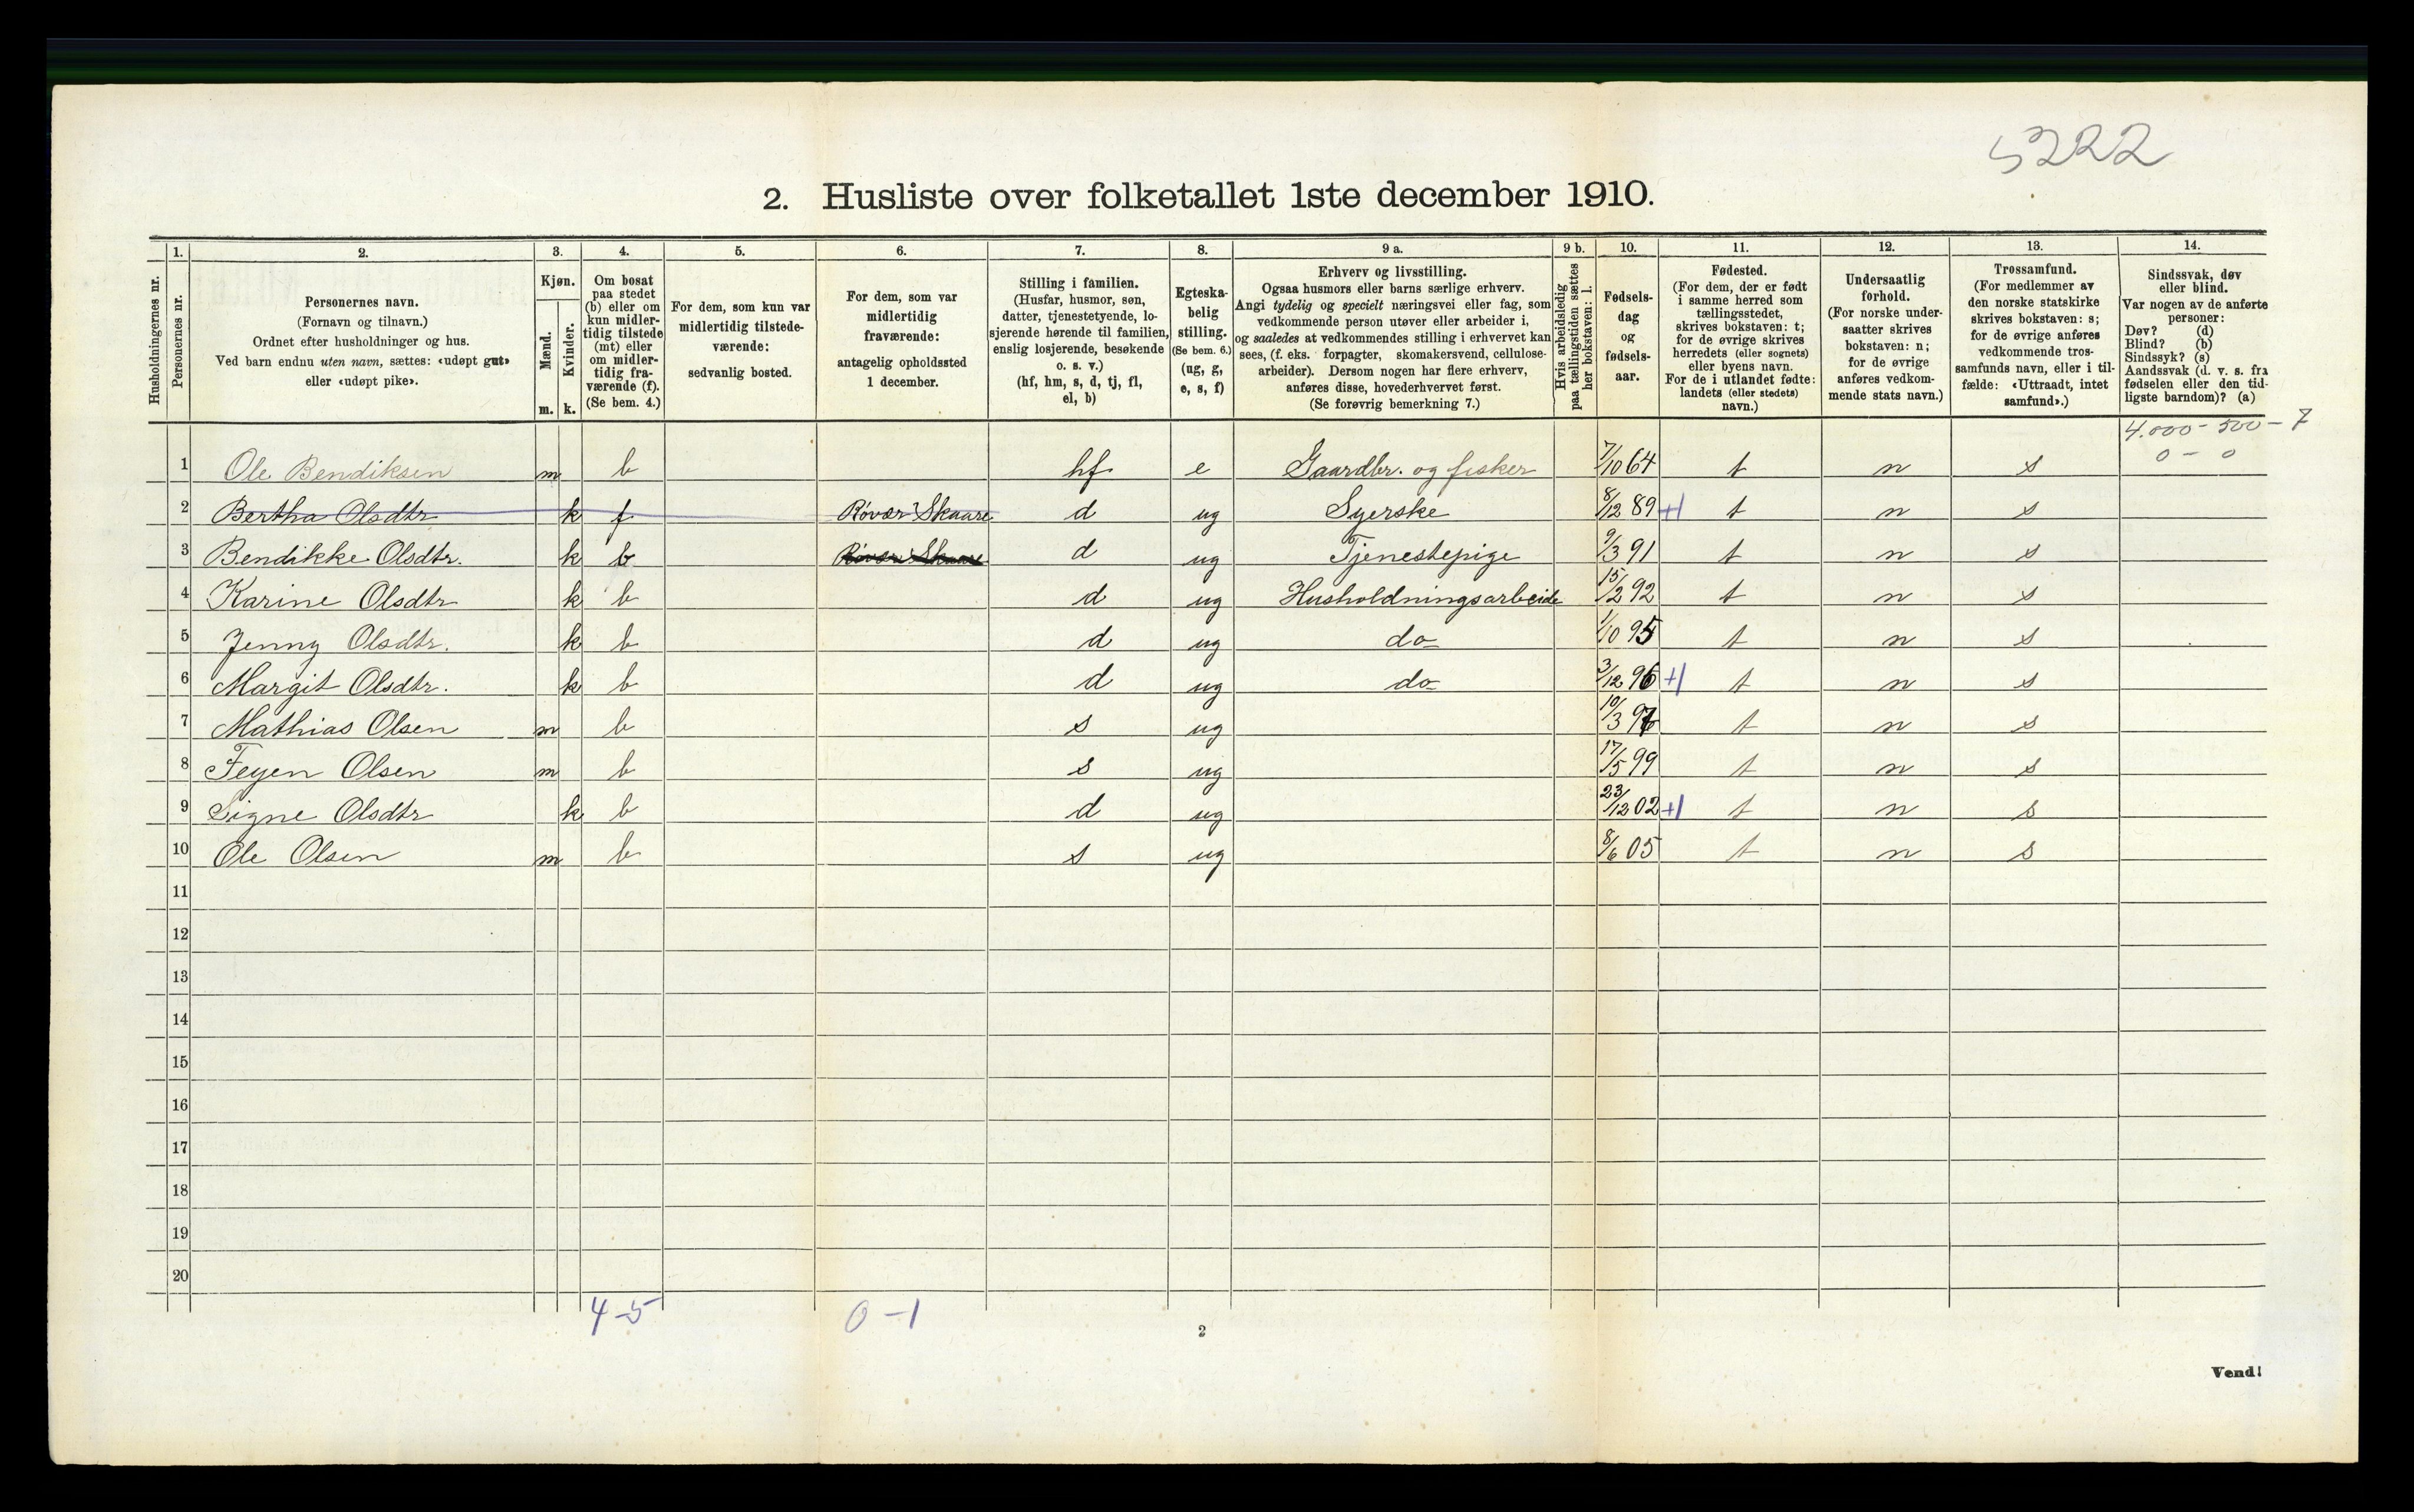 5222
2. Husliste over folketallet 1ste december 1910.
Husholdningernes nr.
1. Personernes nr.
2. Personernes navn. (Fornavn og tilnavn.) Ordnet efter husholdninger og hus. Ved barn endnu uten navn, sættes: «udøpt gut» eller «udøpt pike».
3. Kjøn. Mænd. m. Kvinder. k.
4. Om bosat paa stedet (b) eller om kun midlertidig tilstede (mt) eller om midlertidig fraværende (f). (Se bem. 4.)
5. For dem, som kun var midlertidig tilstedeværende: sedvanlig bosted.
6. For dem, som var midlertidig fraværende: antagelig opholdssted 1 december.
7. Stilling i familien. (Husfar, husmor, søn, datter, tjenestetyende, losjerende hørende til familien, enslig losjerende, besøkende o. s. v.) (hf, hm, s, d, tj, fl, el, b)
8. Egteskabelig stilling. (Se bem. 6.) (ug, g, e, s, f)
9 a. Erhverv og livsstilling. Ogsaa husmors eller barns særlige erhverv. Angi tydelig og specielt næringsvei eller fag, som vedkommende person utøver eller arbeider i, og saaledes at vedkommendes stilling i erhvervet kan sees, (f. eks. forpagter, skomakersvend, cellulosearbeider). Dersom nogen har flere erhverv, anføres disse, hovederhvervet først. (Se forøvrig bemerkning 7.)
9 b. Hvis arbeidsledig paa tællingstiden sættes her bokstaven: l.
10. Fødselsdag og fødselsaar.
11. Fødested. (For dem, der er født i samme herred som tællingsstedet, skrives bokstaven: t; for de øvrige skrives herredets (eller sognets) eller byens navn. For de i utlandet fødte: landets (eller stedets) navn.)
12. Undersaatlig forhold. (For norske undersaatter skrives bokstaven: n; for de øvrige anføres vedkommende stats navn.)
13. Trossamfund. (For medlemmer av den norske statskirke skrives bokstaven: s; for de øvrige anføres vedkommende trossamfunds navn, eller i tilfælde: «Uttraadt, intet samfund».)
14. Sindssvak, døv eller blind. Var nogen av de anførte personer: Døv? (d) Blind? (b) Sindssyk? (s) Aandssvak (d. v. s. fra fødselen eller den tidligste barndom)? (a)
4.000 - 500 - 7
0 - 0
1 Ole Bendiksen m b hf e Gaardbr. og fisker 7/10 64 t n s
2 Bertha Olsdtr k f Røvær Skaare d ug Syerske 8/12 89 +1 t n s
3 Bendikke Olsdtr. k b Røvær Skaare d ug Tjenestepige 9/3 91 t n s
4 Karine Olsdtr k b d ug Husholdningsarbeide 15/2 92 t n s
5 Jenny Olsdtr. k b d ug do 1/10 95 t n s
6 Margit Olsdtr. k b d ug do 3/12 96 +1 t n s
7 Mathias Olsen m b s ug 10/3 97 t n s
8 Feyen Olsen m b s ug 17/5 99 t n s
9 Signe Olsdtr k b d ug 23/12 02 +1 t n s
10 Ole Olsen m b s ug 8/6 05 t n s
11
12
13
14
15
16
17
18
19
20
4-5 0-1
2
Vend!